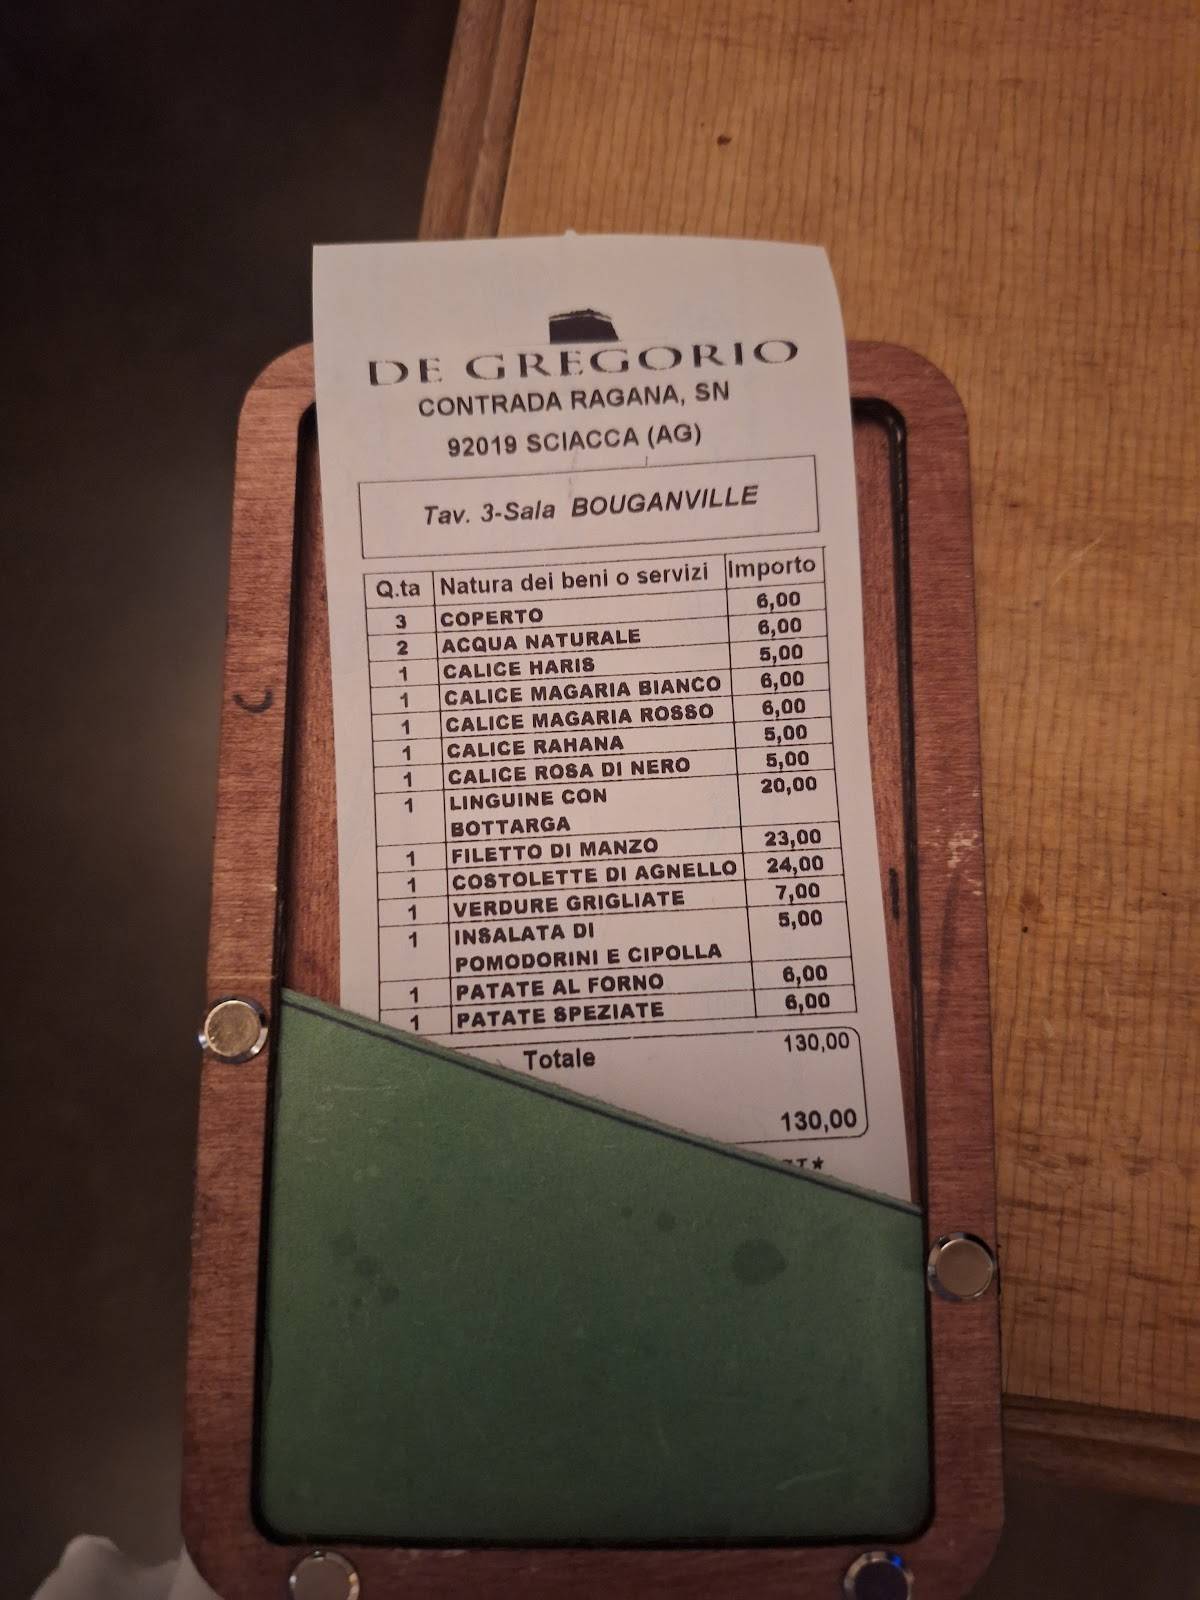 DE GREGORIO
CONTRADA RAGANA, SN
92019 SCIACCA (AG)
Tav. 3-Sala BOUGANVILLE
Q.ta Natura dei beni o servizi Importo
3 COPERTO 6,00
2 ACQUA NATURALE 6,00
1 CALICE HARIS 5,00
1 CALICE MAGARIA BIANCO 6,00
1 CALICE MAGARIA ROSSO 6,00
1 CALICE RAHANA 5,00
1 CALICE ROSA DI NERO 5,00
1 LINGUINE CON 20,00
BOTTARGA
1 FILETTO DI MANZO 23,00
1 COSTOLETTE DI AGNELLO 24,00
1 VERDURE GRIGLIATE 7,00
1 INSALATA DI 5,00
POMODORINI E CIPOLLA
1 PATATE AL FORNO 6,00
1 PATATE SPEZIATE 6,00
Totale 130,00
130,00